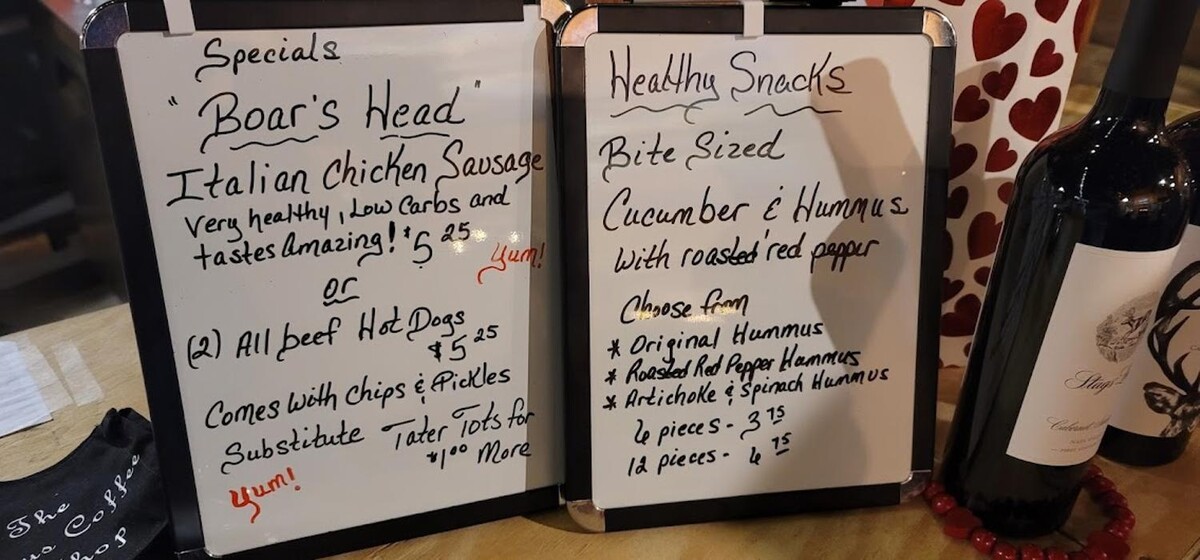 Specials
"Boar's Head"
Italian Chicken Sausage
Very healthy, Low Carbs and
tastes Amazing! $5 25
Yum!
or
(2) All beef Hot Dogs
$5 25
Comes with Chips & Pickles
Substitute Tater Tots for
$1 00 More
Yum!
Healthy Snacks
Bite Sized
Cucumber & Hummus
with roasted red pepper
Choose from
* Original Hummus
* Roasted Red Pepper Hummus
* Artichoke & Spinach Hummus
6 pieces - 3 75
12 pieces - 6 75
The
Coffee
Shop
Stags
Cabernet